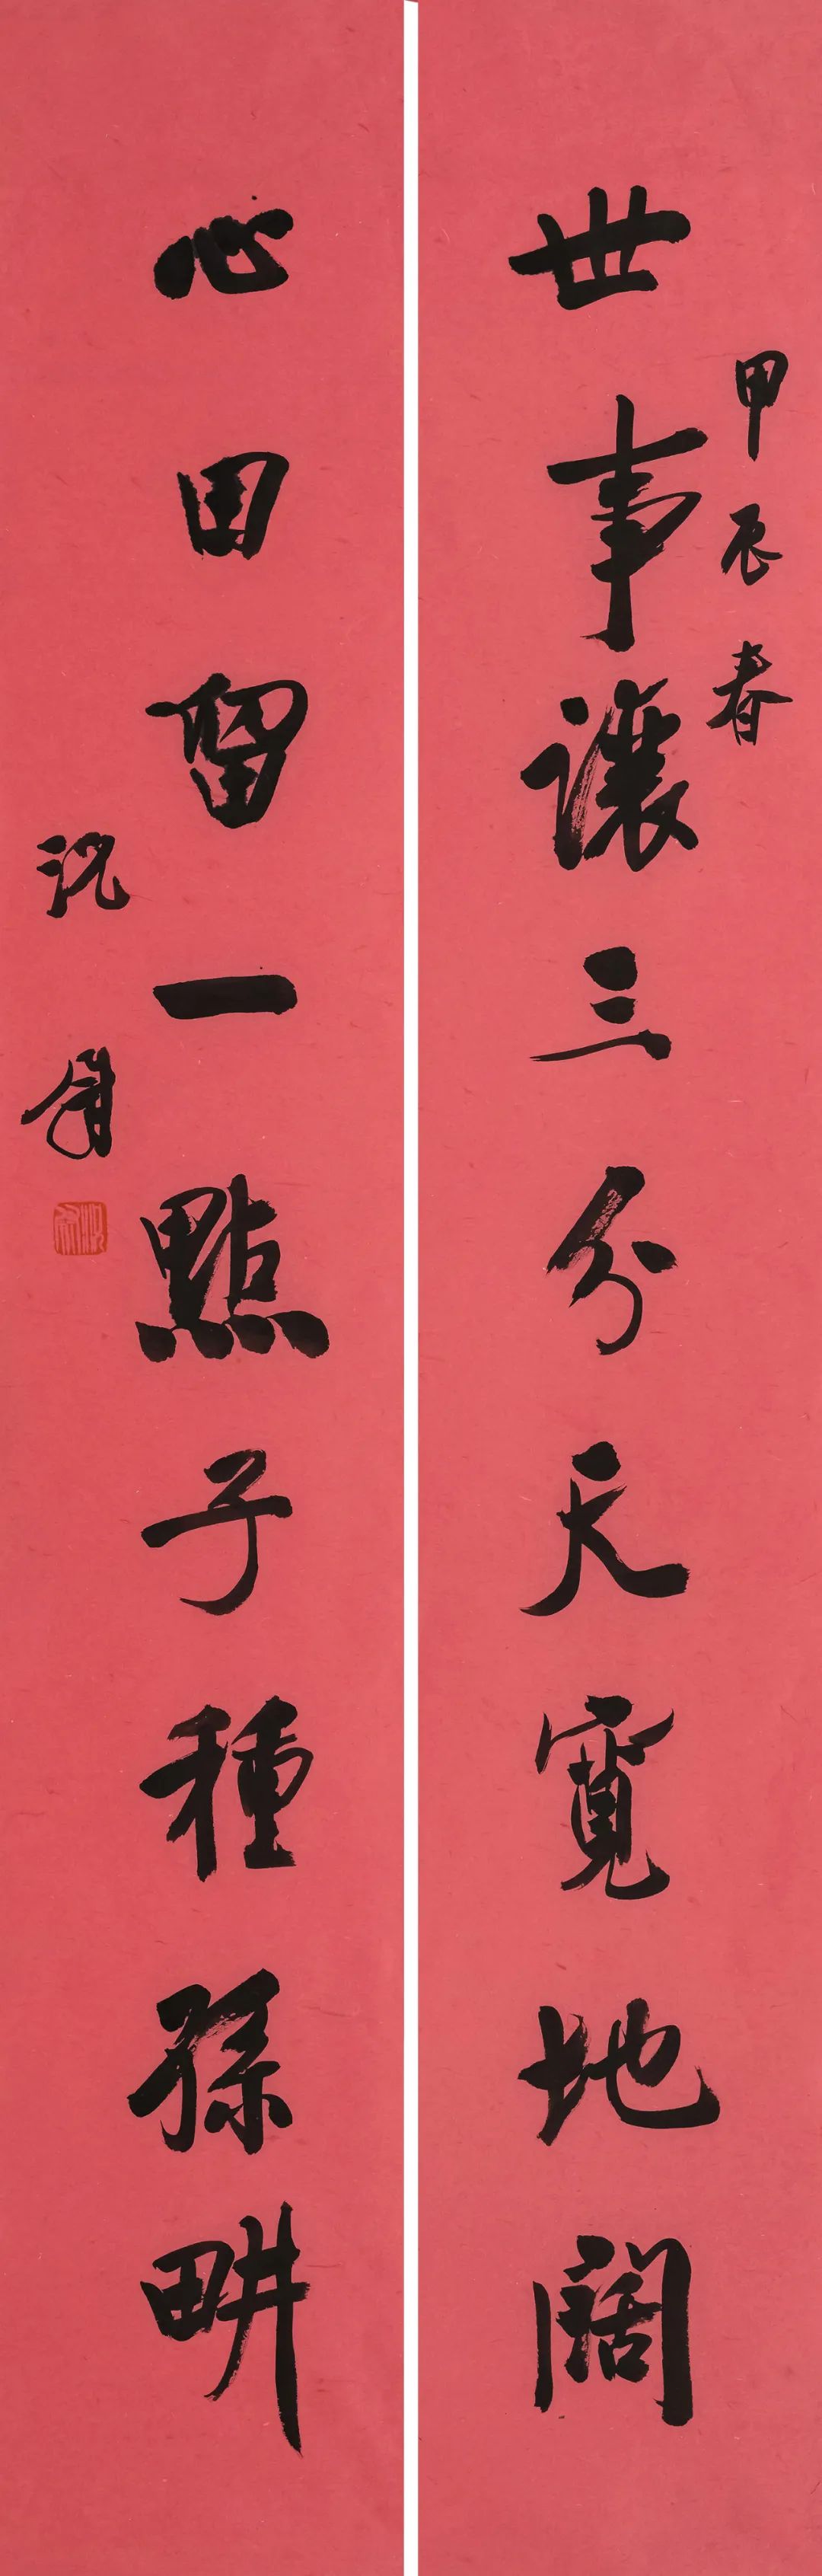 甲辰春
世事讓三分天寬地闊
心田留一點子種孫畊
沉